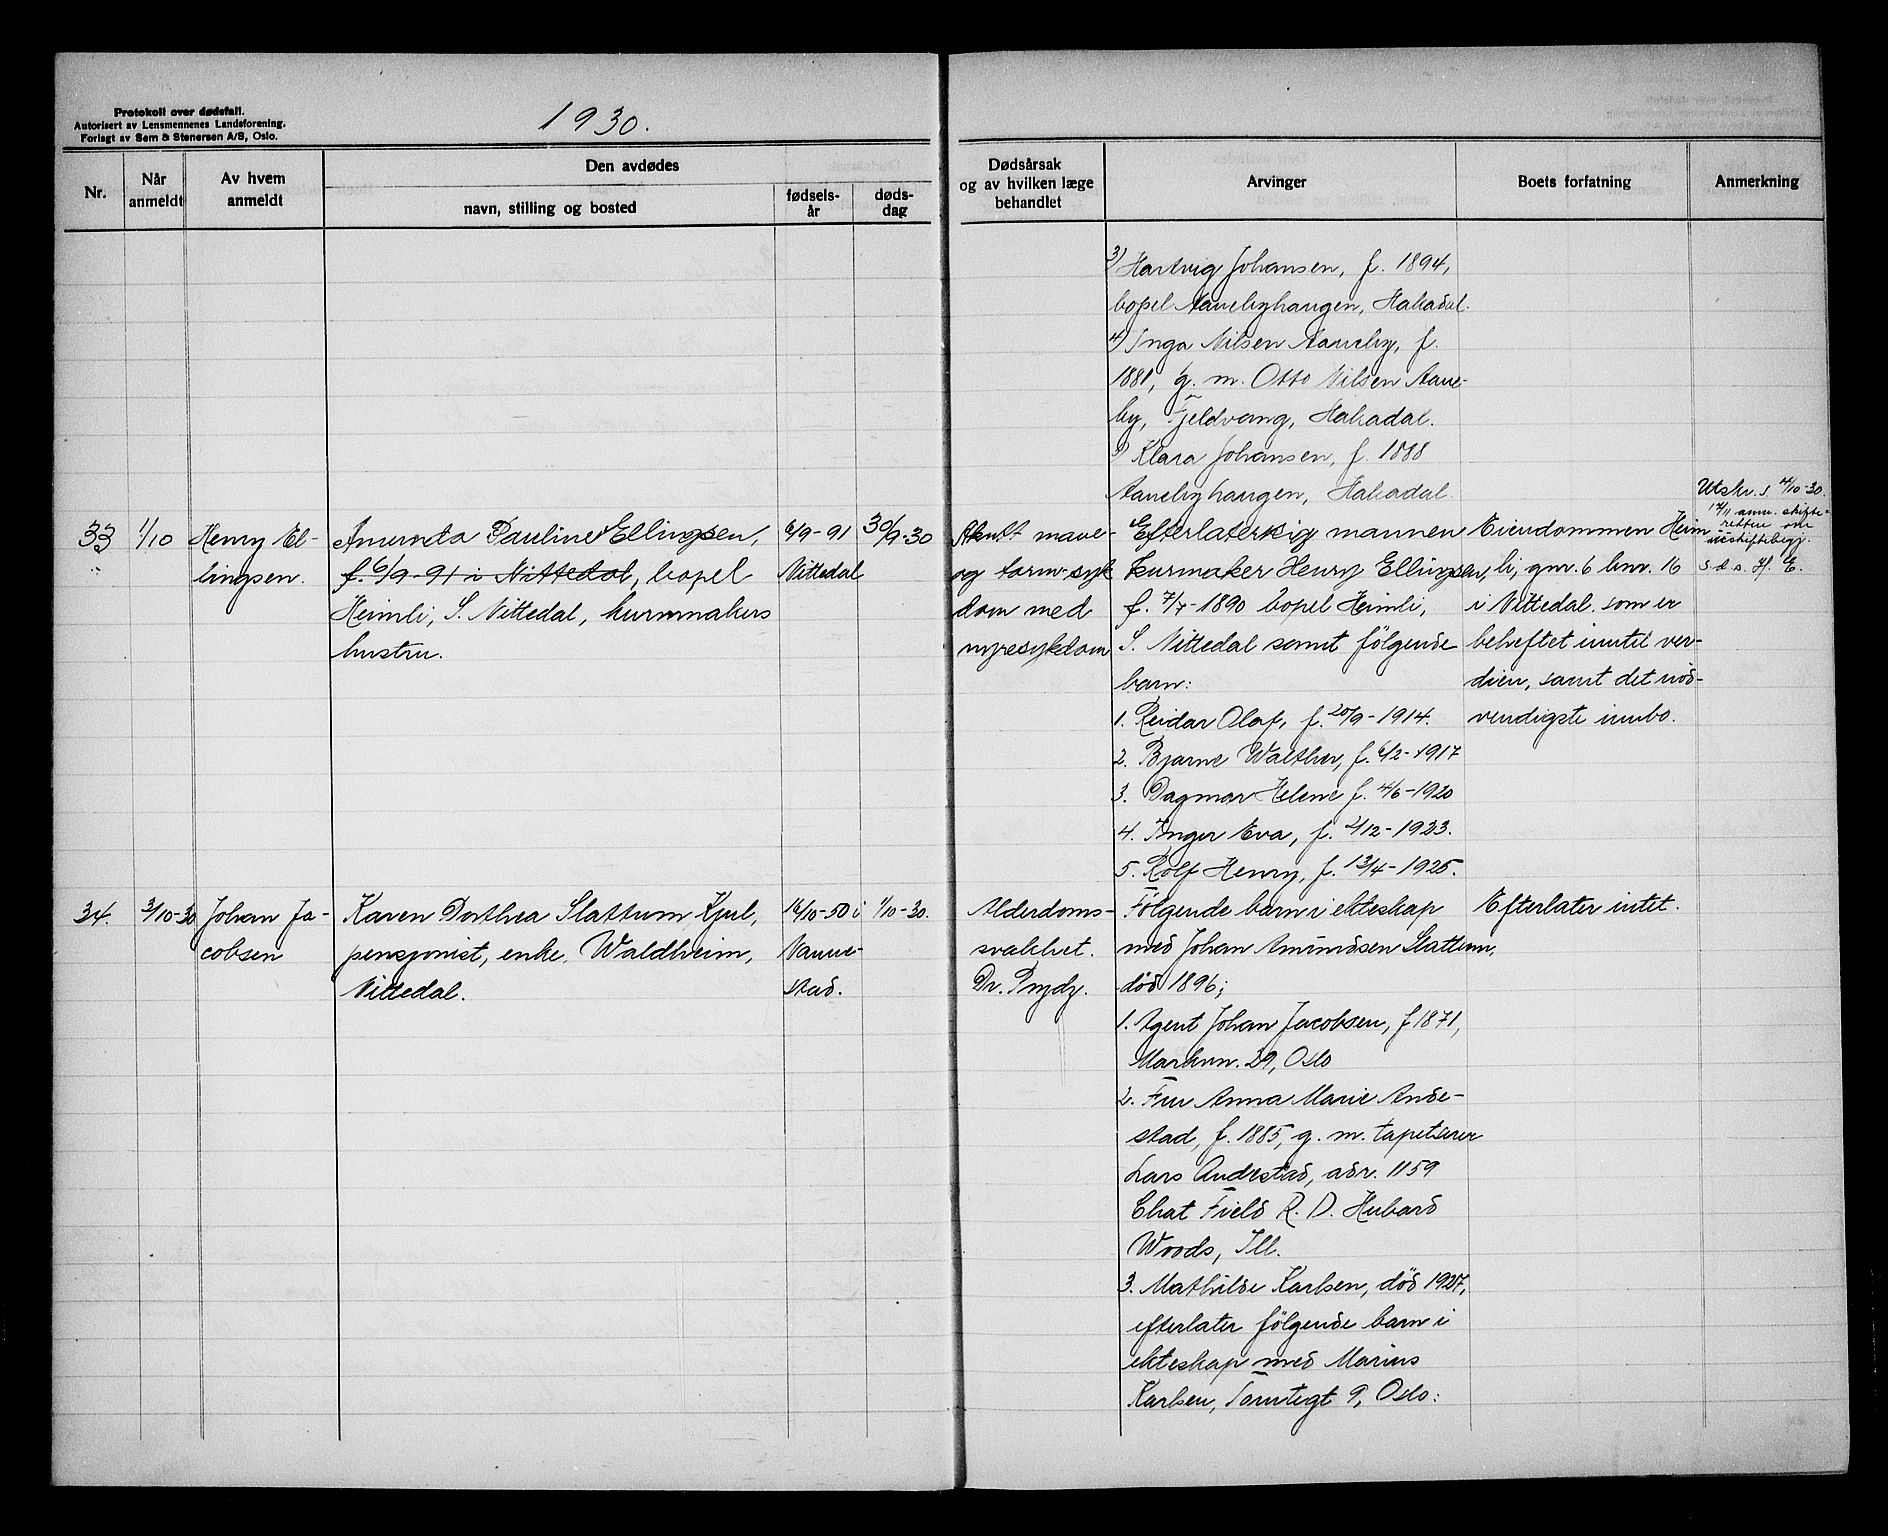 Protokoll over dødsfall.
Autorisert av Lensmennenes Landsforening.
Forlagt av Sem & Stenersen A/S, Oslo.
1930.
Nr.
Når
anmeldt
Av hvem
anmeldt
Den avdødes
navn, stilling og bosted
fødsels-
år
døds-
dag
Dødsårsak
og av hvilken læge
behandlet
Arvinger
Boets forfatning
Anmerkning
3) Hartvig Johansen, f. 1894,
bopel Aanebyhaugen, Hakadal.
4) Inga Nilsen Aaneby, f.
1881, g. m. Otto Nilsen Aane-
by, Fjeldvang, Hakadal.
5) Klara Johansen, f. 1888
Aanebyhaugen, Hakadal.
33
1/10
Henry El-
lingsen.
Anunda Pauline Ellingsen,
f. 6/9-91 i Nittedal, bopel
Heimli, S. Nittedal, burmakers
hustru.
6/9-91
Nittedal
30/9-30
Akutt mave-
og tarm-syk
dom med
nyresykdom
Efterlater sig mannen
burmaker Henry Ellingsen,
f. 7/7-1890 bopel Heimli,
S. Nittedal samt følgende
barn:
1. Reidar Olaf, f. 20/9-1914.
2. Bjarne Walther, f. 6/2-1917
3. Dagmar Helene f. 4/6-1920
4. Inger Eva, f. 2/12-1923.
5. Rolf Henry, f. 13/4-1925.
Eiendommen Heim
li, gnr. 6 bnr. 16
i Nittedal. som er
beheftet inntil ver-
dien, samt det nød-
vendigste innbo.
Utskr. s 4/10-30.
17/11 anm. skifte-
retten om
uskiftebegj.
s d s. H. E.
34.
3/10-30
Johan Ja-
cobsen
Karen Dorthea Slattum Kjul,
pensjonist, enke. Waldheim,
Nittedal.
16/10-50 i
Nanne-
stad.
1/10-30.
Alderdoms-
svakhet.
Dr. Prydz.
Følgende barn i ekteskap
med Johan Amundsen Slattum,
død 1896;
1. Agent Johan Jacobsen, f 1871,
Markvn. 29, Oslo
2. Fru Anna Marie Ande-
stad, f. 1885, g. m. tapetserer
Lars Andestad, adr. 1159
Chat Field R. D. Hubard
Woods, Ill.
3. Mathilde Karlsen, død 1927,
efterlater følgende barn i
ekteskap med Marius
Karlsen, Tomtegt 9, Oslo:
Efterlater intet.